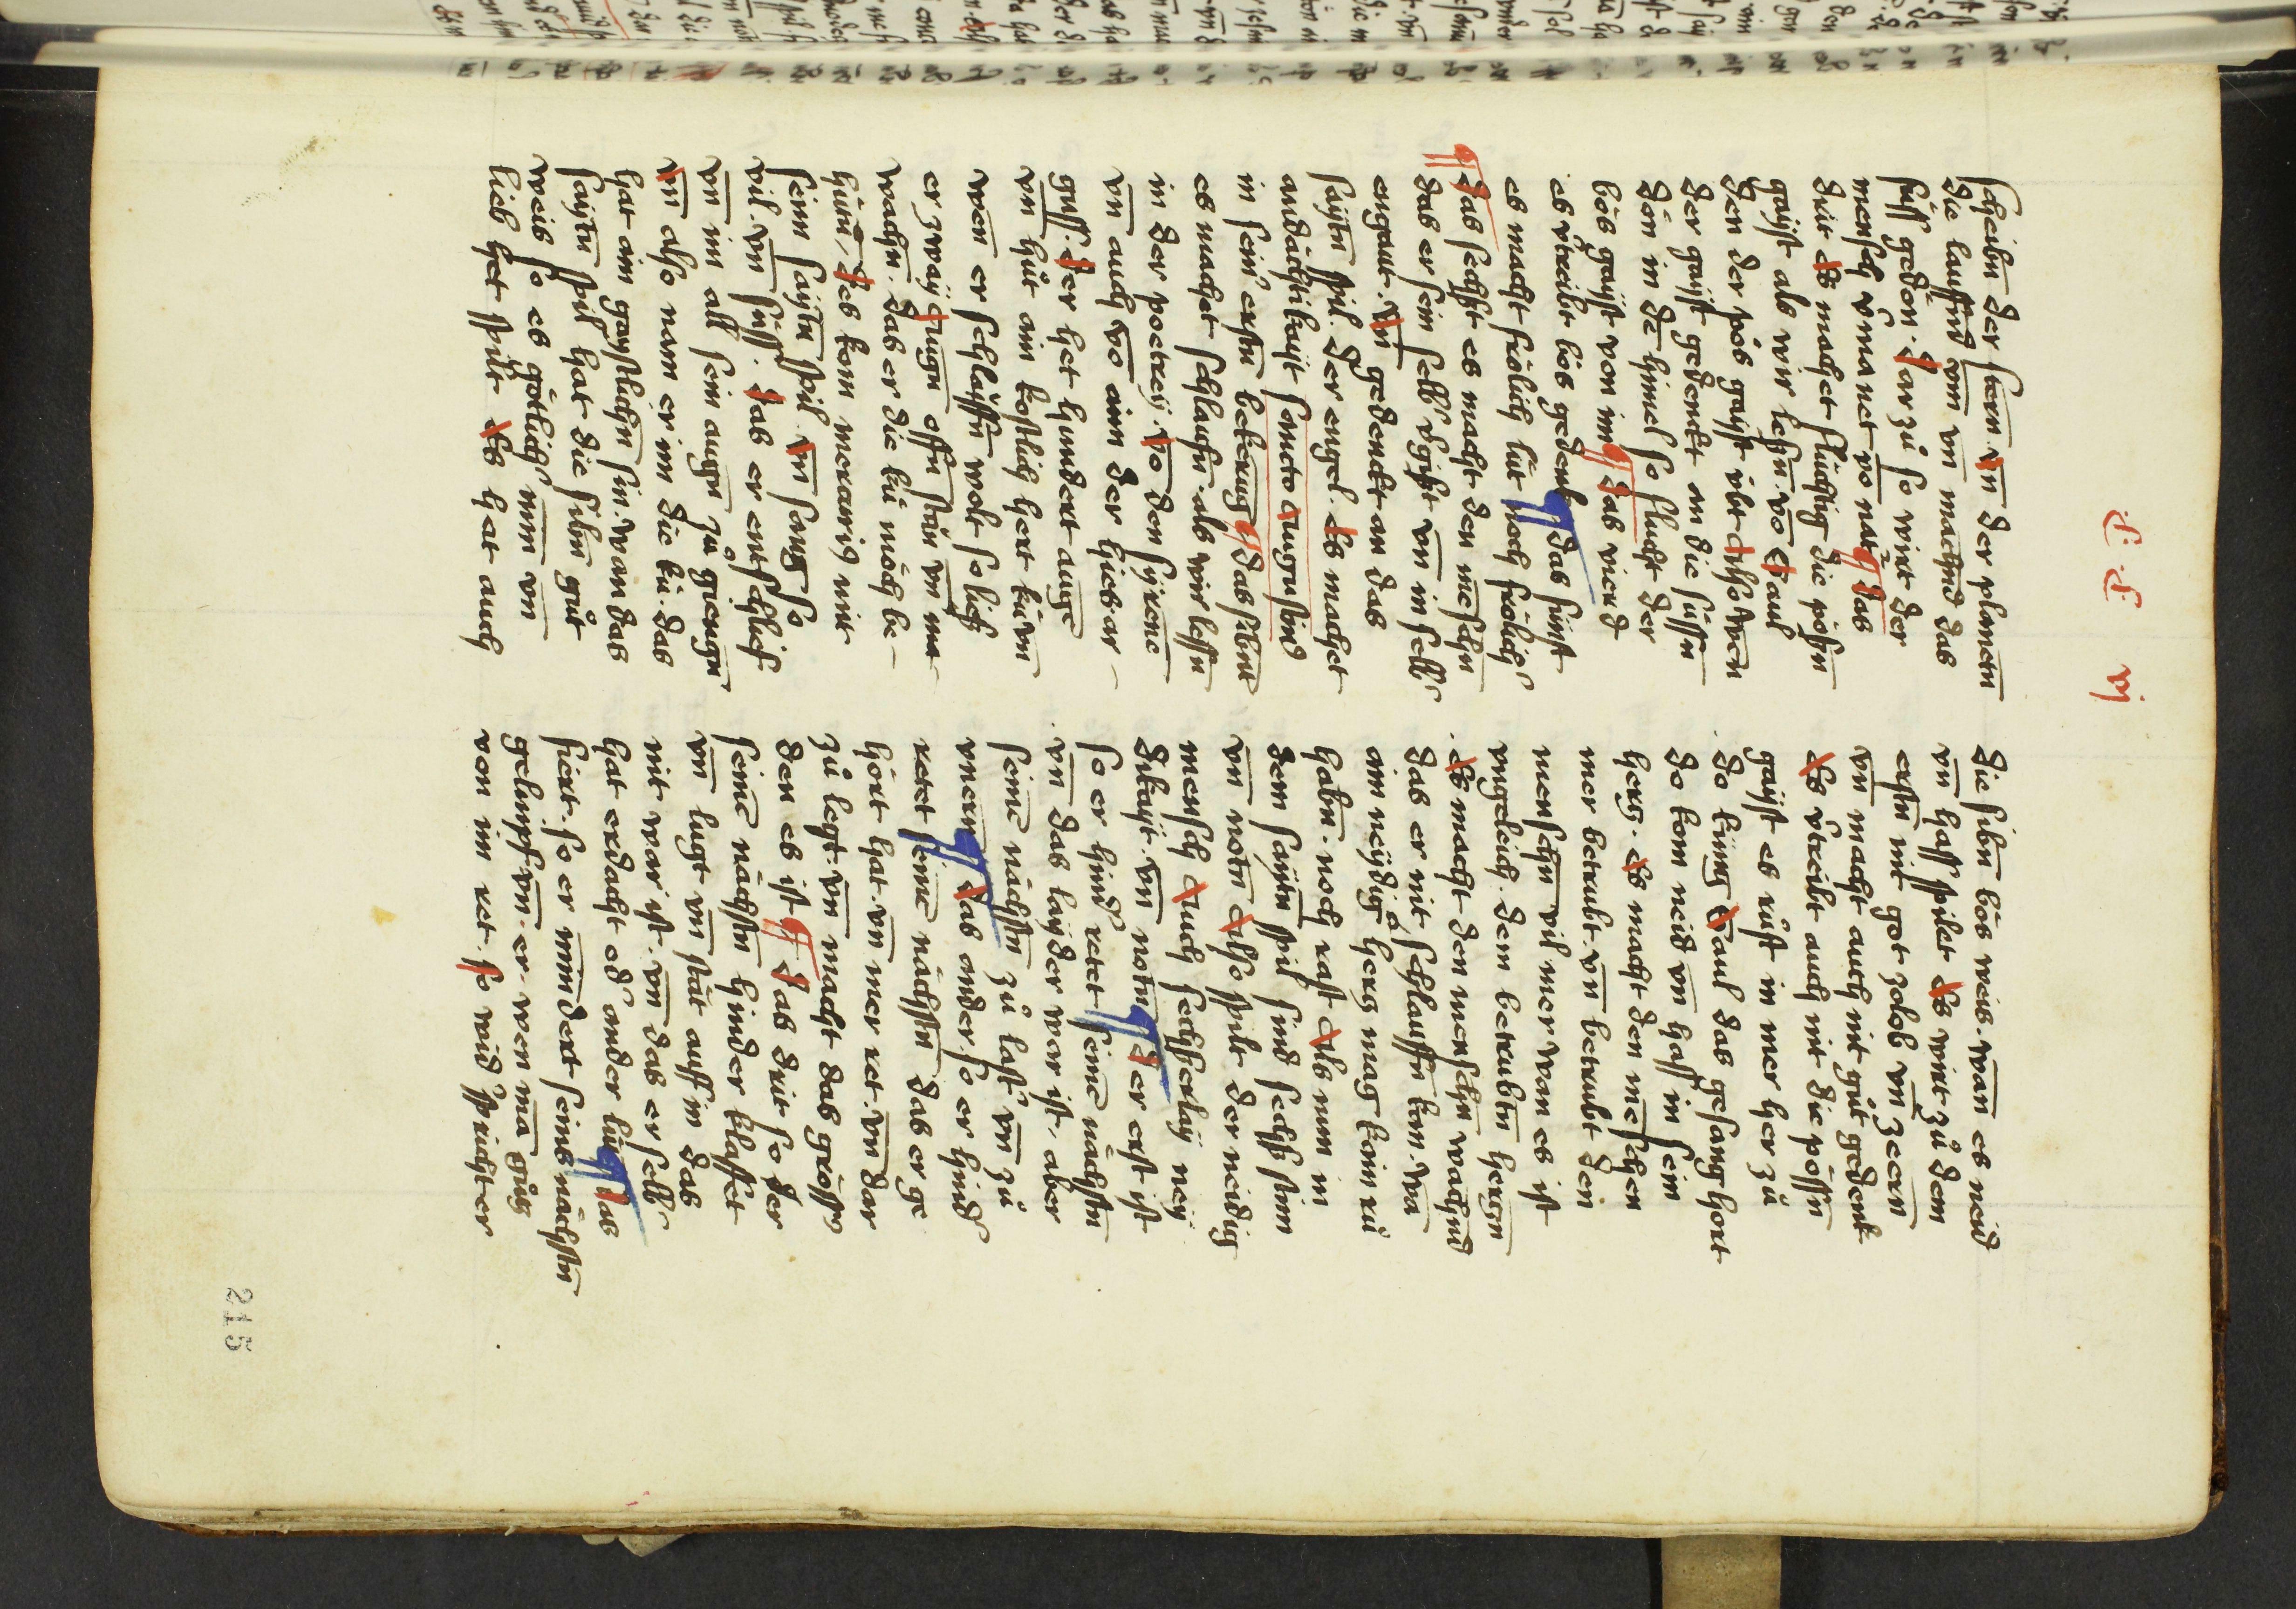 C C vj
scheibn der stern vn̄ der planetn
die lauffnd vm̄ vn̄ machnd das
süss gedön. Dar zů so wirt der
mensch vmanet vō nat¶ Das
drit Es machet flüchtig die pösen
gaÿst als wir lesn. vō Saul
den der pös gaÿst übt Also wen
der gaÿst gedenckt an die süssn
dön in dē himel so flucht der
bös gaÿst von im ¶ Das vierd
es vtreibt bös gedenk ¶ das fünft
es macht frölich lüt noch frölich
¶ Das sechst es macht den mēschn
das er sein selb vgist vn̄ im selb
engaut. Vn̄ gedenckt an das
saÿtn spil. der engel. Es machet
andächtikaÿt sancto Augustino
in sein erstn bekerung ¶ das sibent
es machet schlaufn. als wir lesn
in der poetreÿ. Vō den sÿrene
vn̄ auch vō aim der hies ar
gus. Der het hundert auge
vn̄ hůt ain kostlich hert kü vn̄
wen er schlaffn wolt so liess
er zwaÿ Augn offn stān vn̄ ma
wachn. das er die kü möch be
hütē. Des kom mercurig mit
seim saÿtn spil vn̄ song so
vil. vn̄ süss. Das er entschlief
vn̄ im all sein augn zů giengn
vn̄ also nam er im die kü. das
hat ain gaÿstlichn sin. wan das
saÿtn spil hat die sibn gůt
weis so es götlich min vn̄
lieb het spilt Es hat auch
die sibn bös weis. wan es neid
vn̄ hass spilet Es wirt zů dem
erstn nit got zolob vn̄ zeern
vn̄ macht auch nit gůt gedenk
Es vtreibt auch nit die pössn
gaÿst es rüft in mer her zů
do küng Saul das gesang hort
do kom neid vn̄ hass in sein
hercz. Es macht den mēschen
mer betrubt. vn̄ betrubt den
menschn vil mer wan es ist
vngeleich. dem betrubtn herczn
Es macht den menschn wachnd
das er nit schlauffn kan. wa
ain neÿdig hercz mag kain rů
habn. noch rast Als nun in
dem saÿtn spil sind sechs stim
vn̄ notn Also spilt der neidig
mensch Auch sechserlaÿ neÿ
dikaÿt. vn̄ notn ¶ Der erst ist
so er hind retet seinē nächstn
vn̄ das laÿder war ist. aber
seinē nächstn zů last vn̄ zů
vnern ¶ Das ander. so er hind
retet seinē nächstn das er ge
hört hat. vn̄ mer ret. vn̄ dar
zů legt. vn̄ macht das gröss
den es ist ¶ Das drit so der
seinē nächstn hinder klaffet
vn̄ lugt vn̄ stāt auff in das
nit war ist. vn̄ das er selb
hat erdacht od ander lüt ¶ Das
fiert. so er mindert seins nächstn
gelimpf vn̄. er. wen mā gůtz
von im ret. so wid spricht er
215